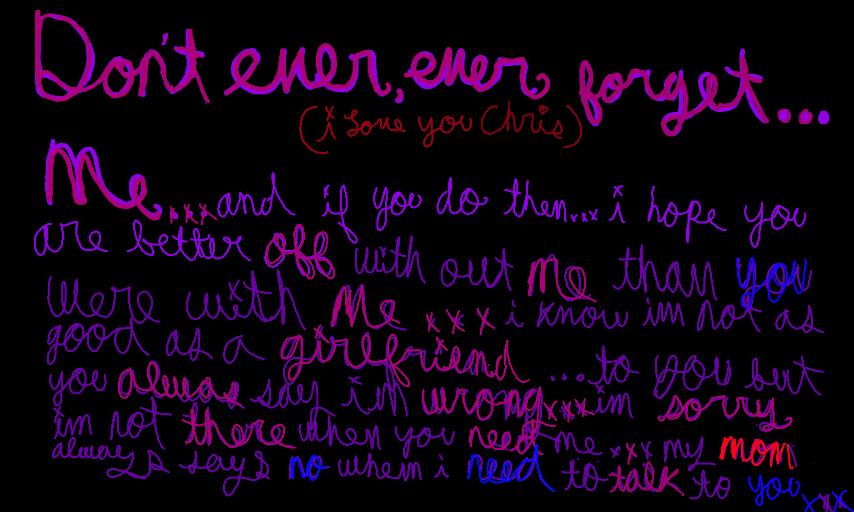 Don't ever, ever forget...
(i Love you Chris)
Me...xxxand if you do then...xxx i hope you
are better off with out me than you
were with Me xxx i know im not as
good as a girlfriend ...to you but
you alwas say i'm wrong...xxxim sorry
im not there when you need me xxx my mom
always says no whem i need to talk to you xxx